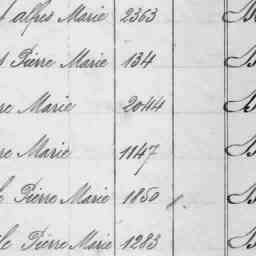 alfred Marie 2363
Pierre Marie 134
re Marie 2044
re Marie 1147
Pierre Marie 1850
le Pierre Marie 1283